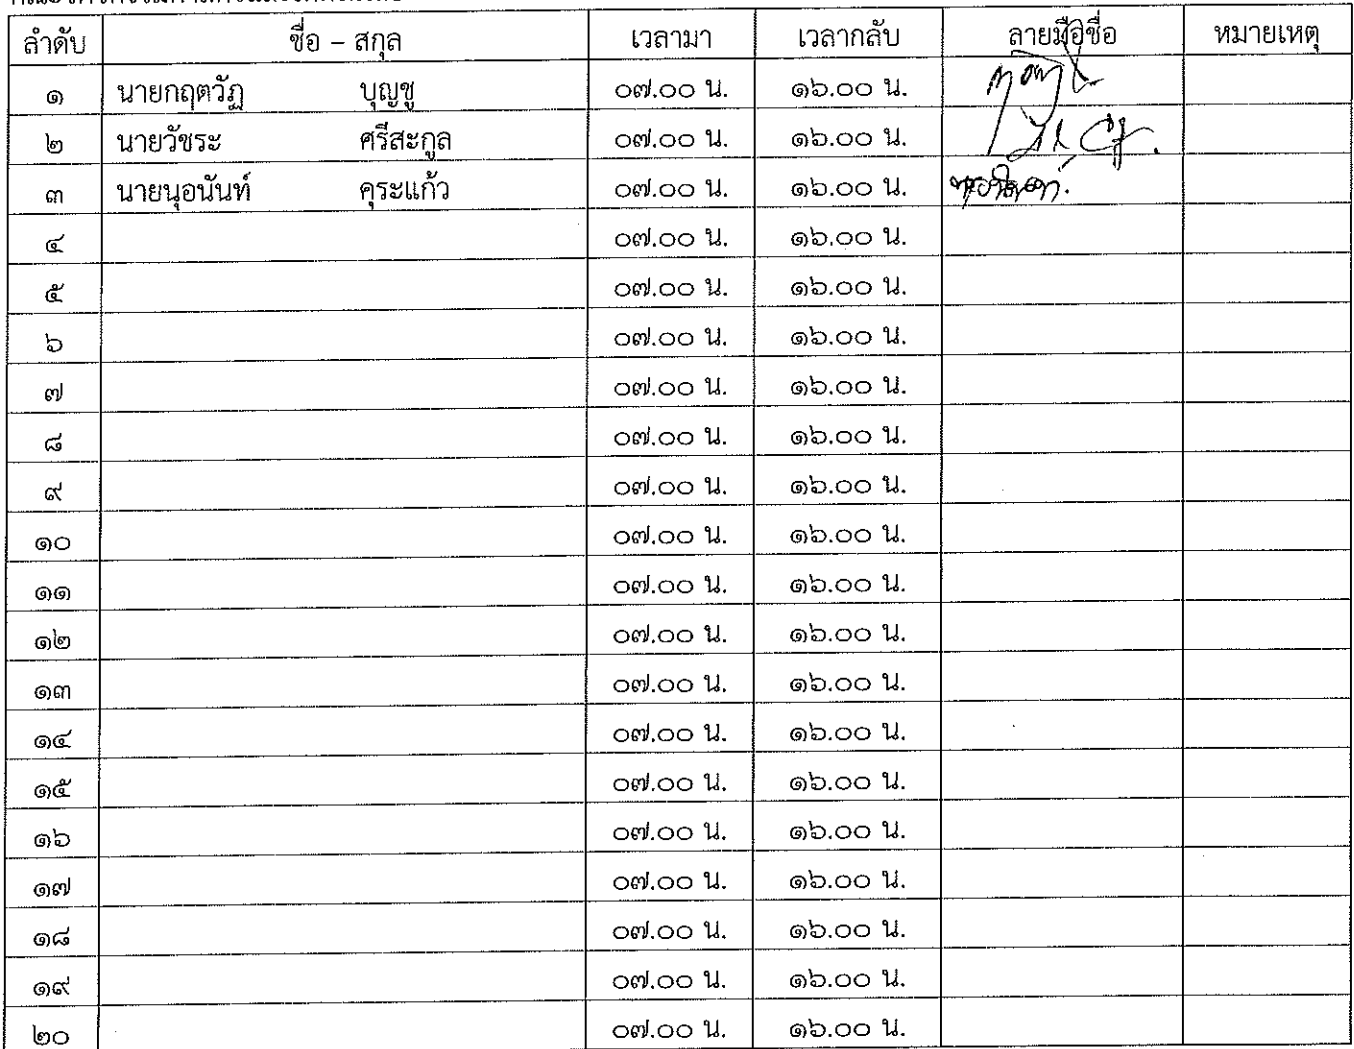 ลำดับ ชื่อ – สกุล เวลามา เวลากลับ ลายมือชื่อ หมายเหตุ
๑ นายกฤตวัฏ บุญชู ๐๗.๐๐ น. ๑๖.๐๐ น.
๒ นายวัชระ ศรีสะกูล ๐๗.๐๐ น. ๑๖.๐๐ น.
๓ นายนุอนันท์ คุระแก้ว ๐๗.๐๐ น. ๑๖.๐๐ น.
๔ ๐๗.๐๐ น. ๑๖.๐๐ น.
๕ ๐๗.๐๐ น. ๑๖.๐๐ น.
๖ ๐๗.๐๐ น. ๑๖.๐๐ น.
๗ ๐๗.๐๐ น. ๑๖.๐๐ น.
๘ ๐๗.๐๐ น. ๑๖.๐๐ น.
๙ ๐๗.๐๐ น. ๑๖.๐๐ น.
๑๐ ๐๗.๐๐ น. ๑๖.๐๐ น.
๑๑ ๐๗.๐๐ น. ๑๖.๐๐ น.
๑๒ ๐๗.๐๐ น. ๑๖.๐๐ น.
๑๓ ๐๗.๐๐ น. ๑๖.๐๐ น.
๑๔ ๐๗.๐๐ น. ๑๖.๐๐ น.
๑๕ ๐๗.๐๐ น. ๑๖.๐๐ น.
๑๖ ๐๗.๐๐ น. ๑๖.๐๐ น.
๑๗ ๐๗.๐๐ น. ๑๖.๐๐ น.
๑๘ ๐๗.๐๐ น. ๑๖.๐๐ น.
๑๙ ๐๗.๐๐ น. ๑๖.๐๐ น.
๒๐ ๐๗.๐๐ น. ๑๖.๐๐ น.